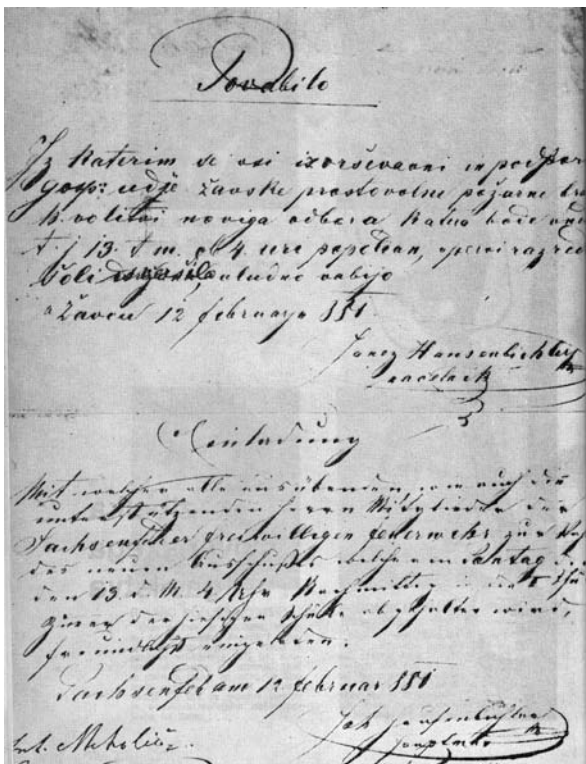 Povabilo
Iz katerim se vsi izvrševavni in podpor
gosp: udje žavske prostovolne požarne bra
k volitvi noviga odbora katira bode
t. j 13. t m. ob 4. uri popoldan, v pervi razred
šoli uludno vabijo
Žavcu 12 februarja 881.
Janez Hausenbichler
načelnik
Einladung
Mit welcher alle ausübenden wie auch die
unterstützenden Herrn Mitglieder der
Sachsenfelder freiwilligen Feuerwehr zur
des neuen Ausschußes welche am Sontag
den 13. d. M. 4 Uhr Nachmittag in die I.
der hiesigen Schule abgehalten wird,
freundlichst eingeladen.
Sachsenfeld am 12 Februar 881
Joh Hausenbichler
Hauptmann